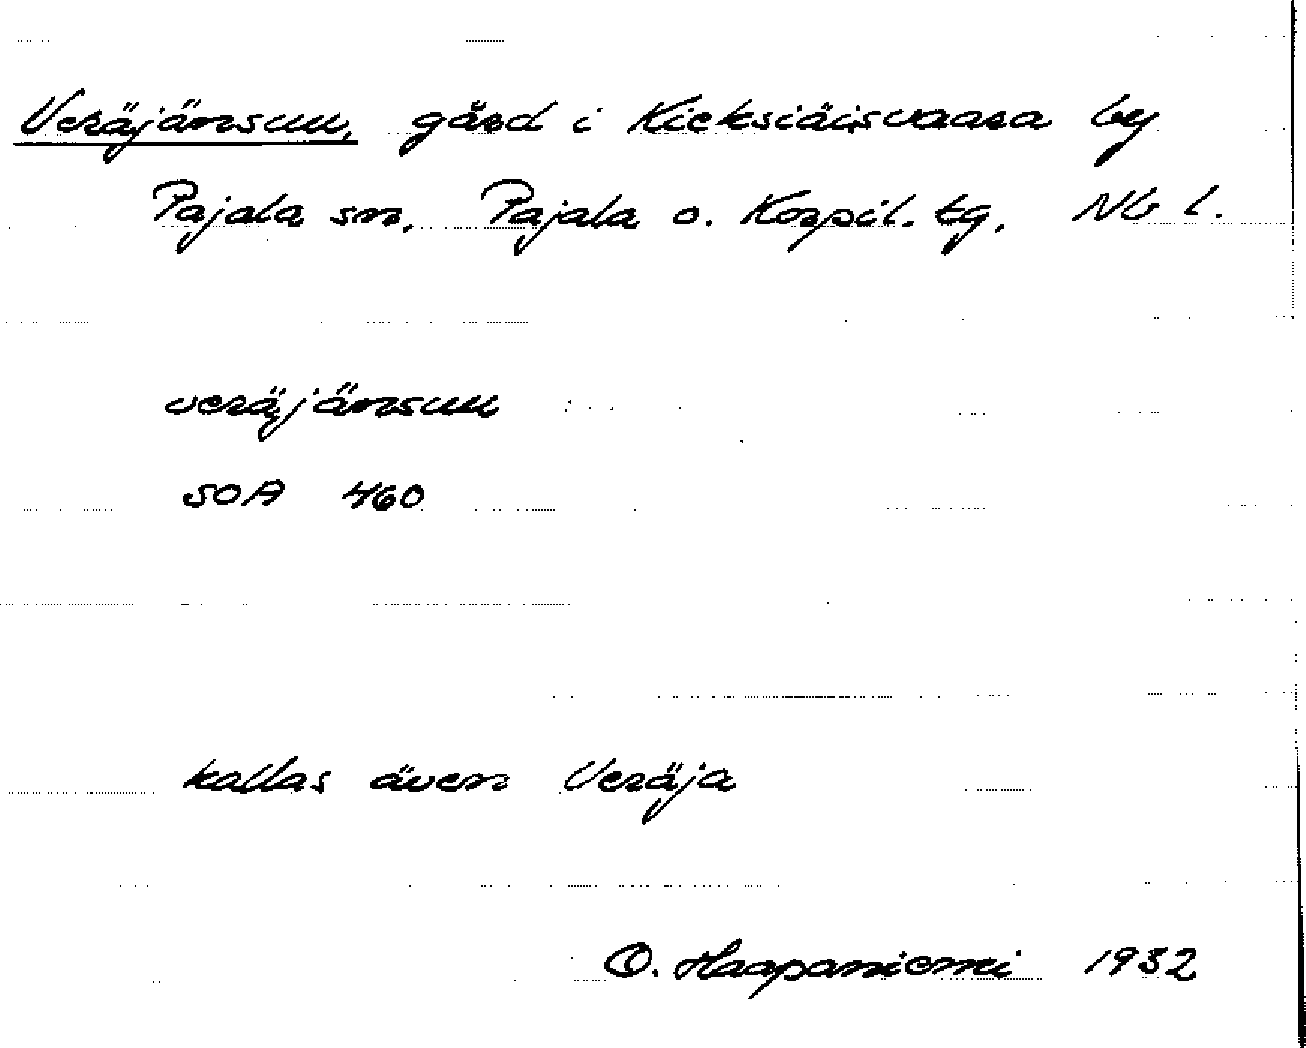 Veräjänsuu, gård i Kieksiäisvaara by
Pajala sn, Pajala o. Korpil. tg, Nb l.
veräjänsuu
SOA 460
kallas även Veräja
O. Haapaniemi 1932